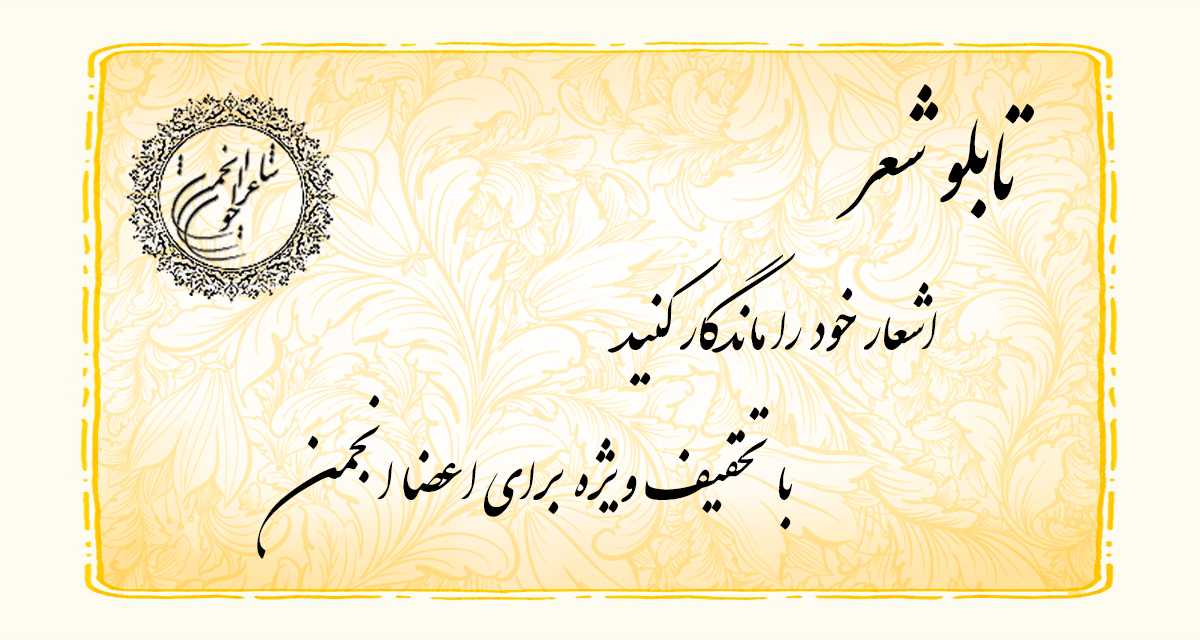 تابلو شعر
اشعار خود را ماندگار کنید
با تخفیف ویژه برای اعضا انجمن
انجمن
شاعران جوان